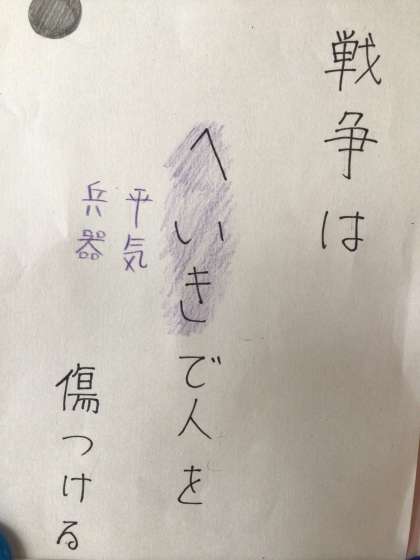 戦争は
へいきで人を
平気
兵器
傷つける